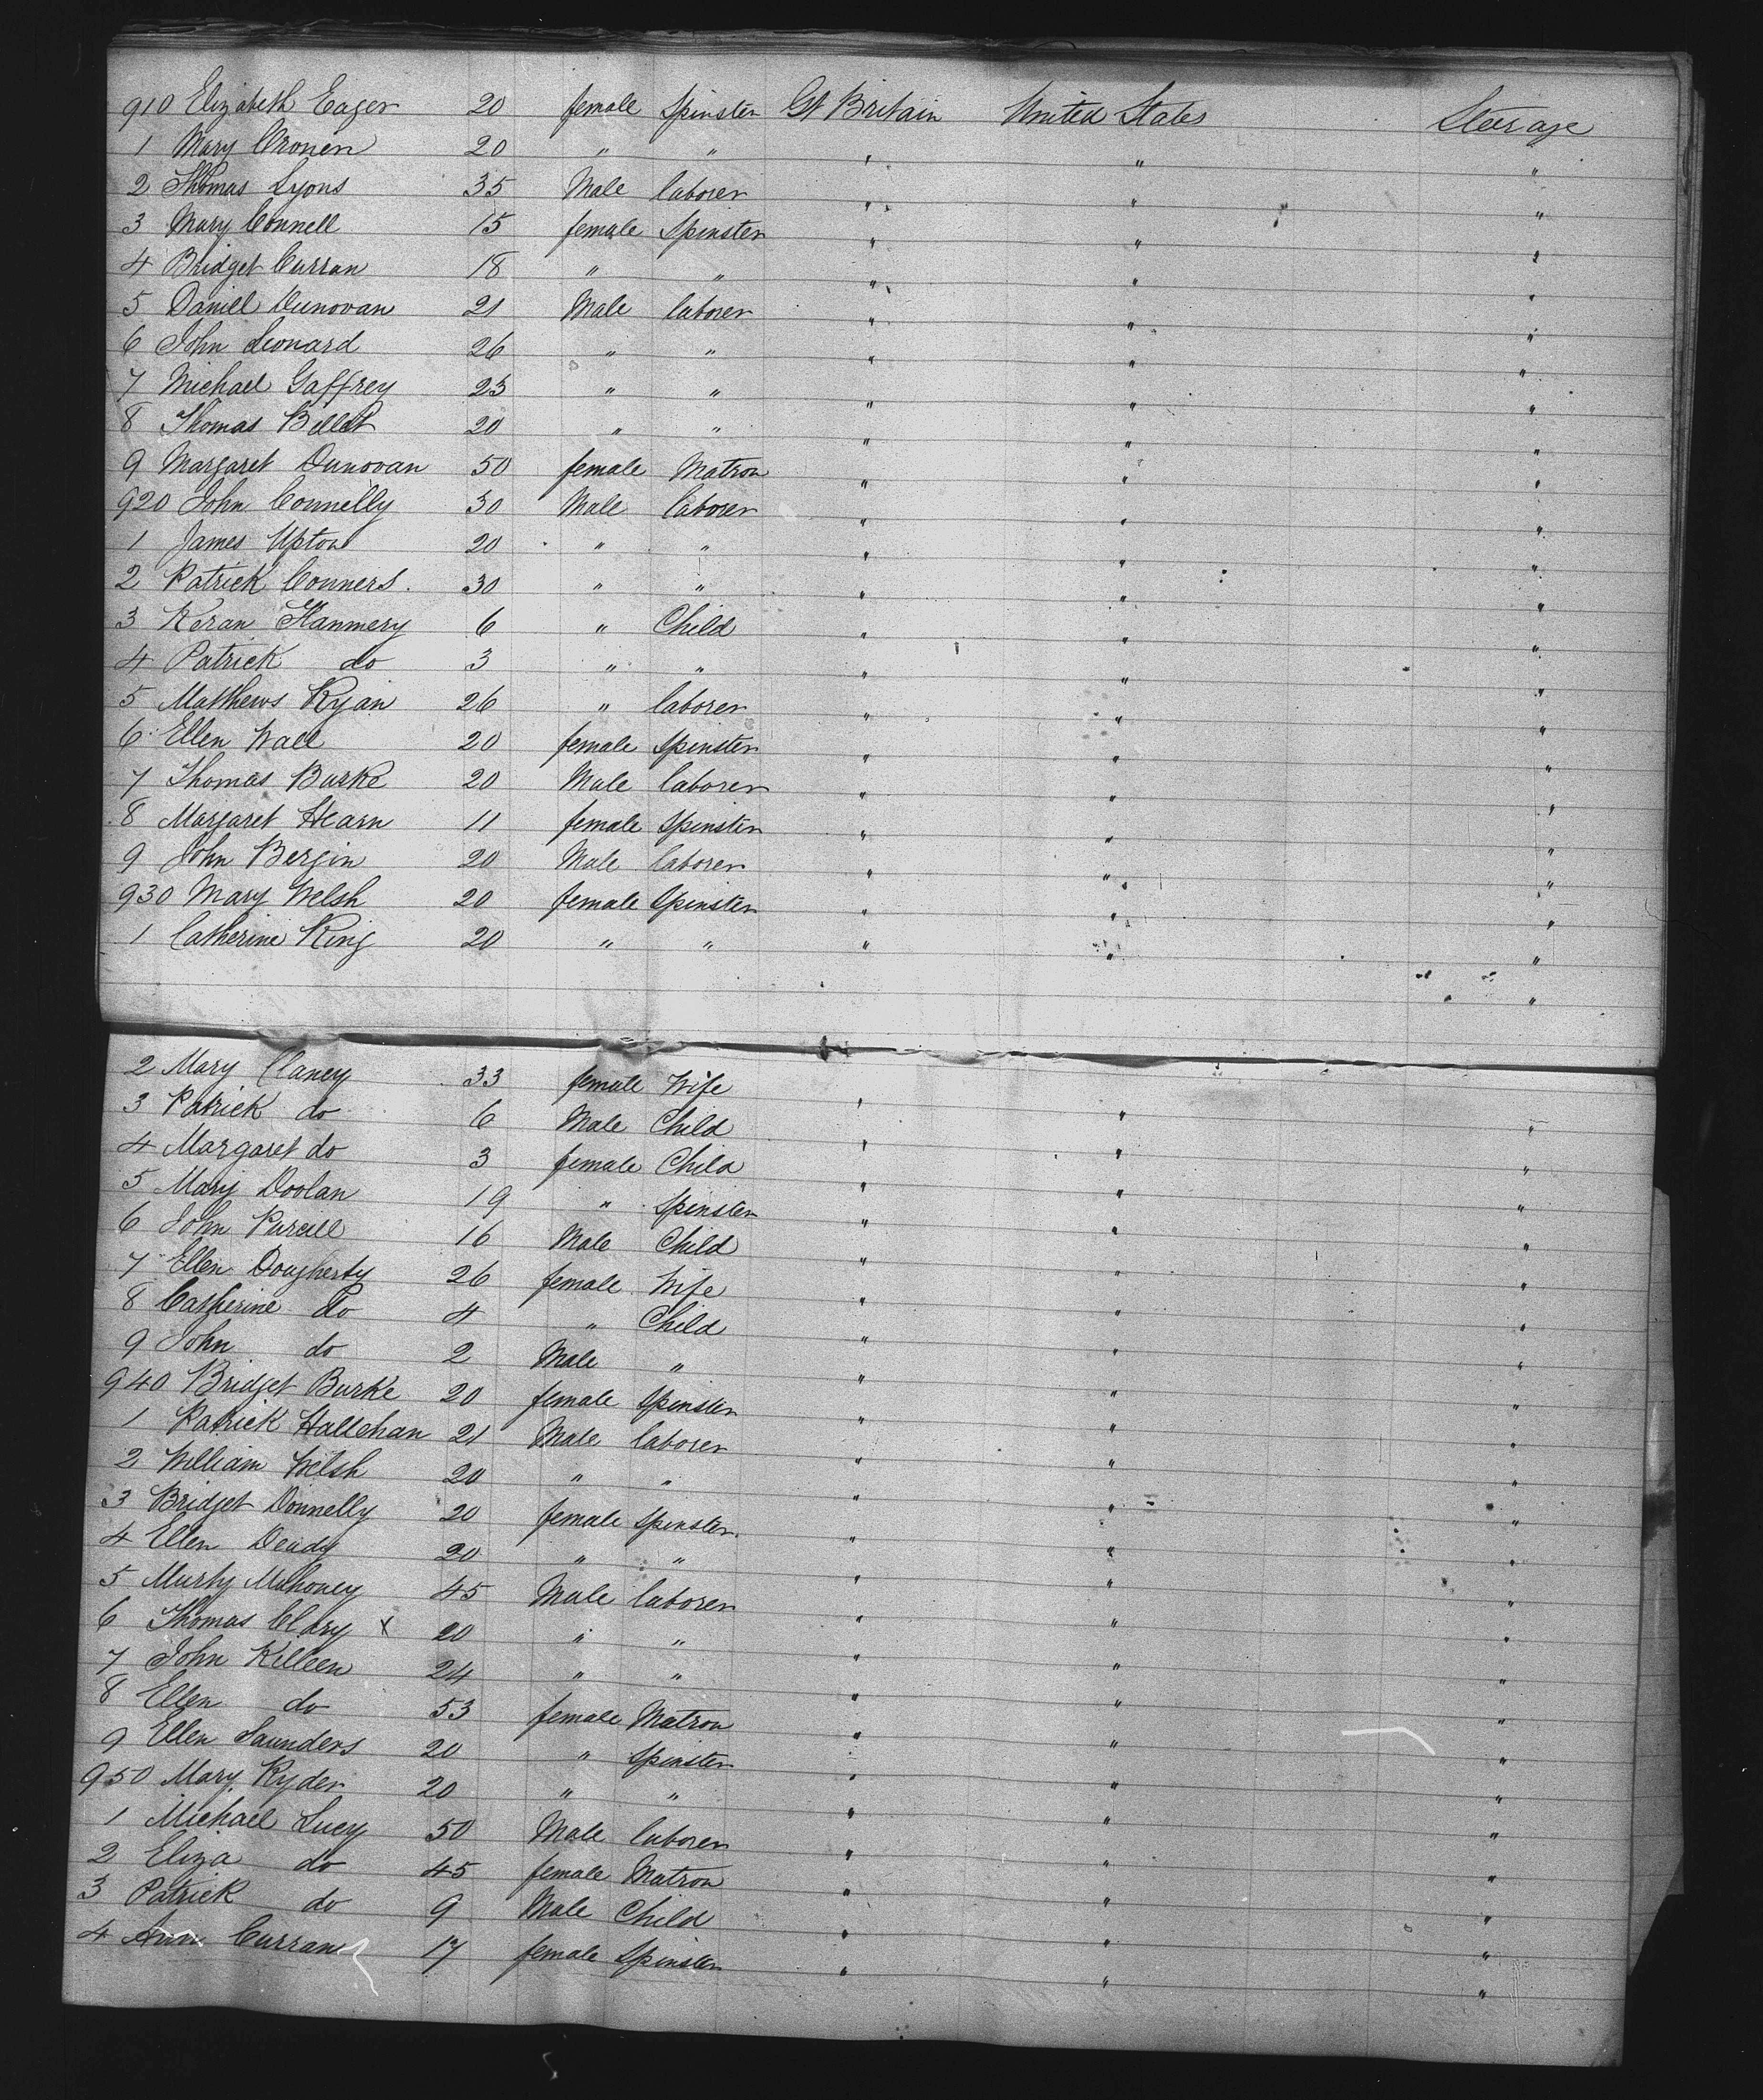 910 Elizabeth Eager 20 female Spinster Gt Britain United States Steerage
1 Mary Cronin 20 " " " " "
2 Thomas Lyons 35 Male laborer " " "
3 Mary Connell 15 female Spinster " " "
4 Bridget Curran 18 " " " " "
5 Daniel Dunovan 21 Male laborer " " "
6 John Leonard 26 " " " " "
7 Michael Gaffrey 23 " " " " "
8 Thomas 20 " " " " "
9 Margaret Dunovan 50 female Matron " " "
920 John Connelly 30 Male laborer " " "
1 James Upton 20 " " " " "
2 Patrick Conners. 30 " " " " "
3 Keran Flanmery 6 " Child " " "
4 Patrick do 3 " " " " "
5 Matthews Ryan 26 " laborer " " "
6 Ellen Wall 20 female Spinster " " "
7 Thomas Burke 20 Male laborer " " "
8 Margaret Hearn 11 female Spinster " " "
9 John Bergin 20 Male laborer " " "
930 Mary Welsh 20 female Spinster " " "
1 Catherine King 20 " " " " "
"
2 Mary Claney 33 female Wife " " "
3 Patrick do 6 Male Child " " "
4 Margaret do 3 female Child " " "
5 Mary Doolan 19 " Spinster " " "
6 John Purcill 16 Male Child " " "
7 Ellen Dougherty 26 female Wife " " "
8 Catherine do 4 " Child " " "
9 John do 2 Male " " " "
940 Bridget Burke 20 female Spinster " " "
1 Patrick Hallehan 21 Male laborer " " "
2 William Welsh 20 " " " " "
3 Bridget Donnelly 20 female Spinster. " " "
4 Ellen Deady 20 " " " " "
5 Murty Mahoney 45 Male laborer " " "
6 Thomas Clary x 20 " " " " "
7 John Killeen 24 " " " " "
8 Ellen do 53 female Matron " " "
9 Ellen Saunders 20 " Spinster " " "
950 Mary Ryder 20 " " " " "
1 Michael Lucy 50 Male laborer " " "
2 Eliza do 45 female Matron " " "
3 Patrick do 9 Male Child " " "
4 Ann Curran 17 female Spinster " " "